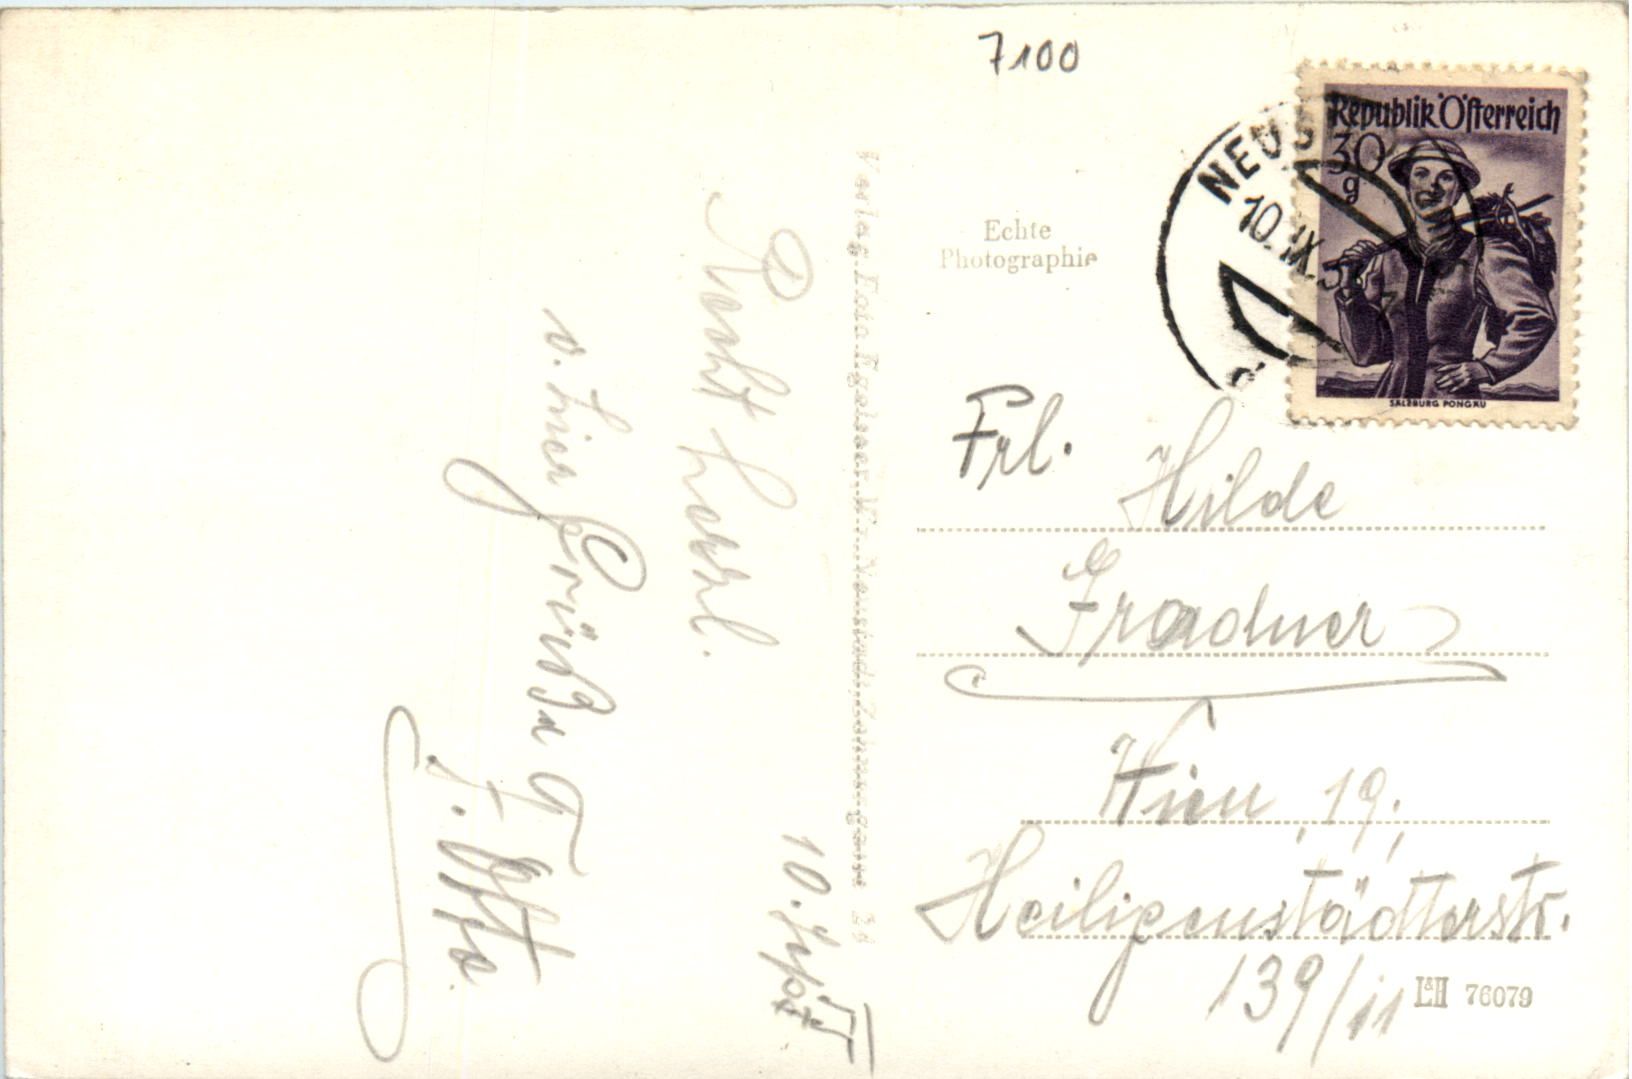 7100
Republik Österreich
30
g
SALZBURG PONGAU
NEUS
10.IX.5
Echte
Photographie
Verlag Foto Egelseer, Wr. Neustadt, Zehnergasse
Frl. Hilde
Gradner
Wien, 19,
Heiligenstädterstr.
139/11
L&H 76079
10. Sept.
Recht herzl.
v. hier Grüße
Otto